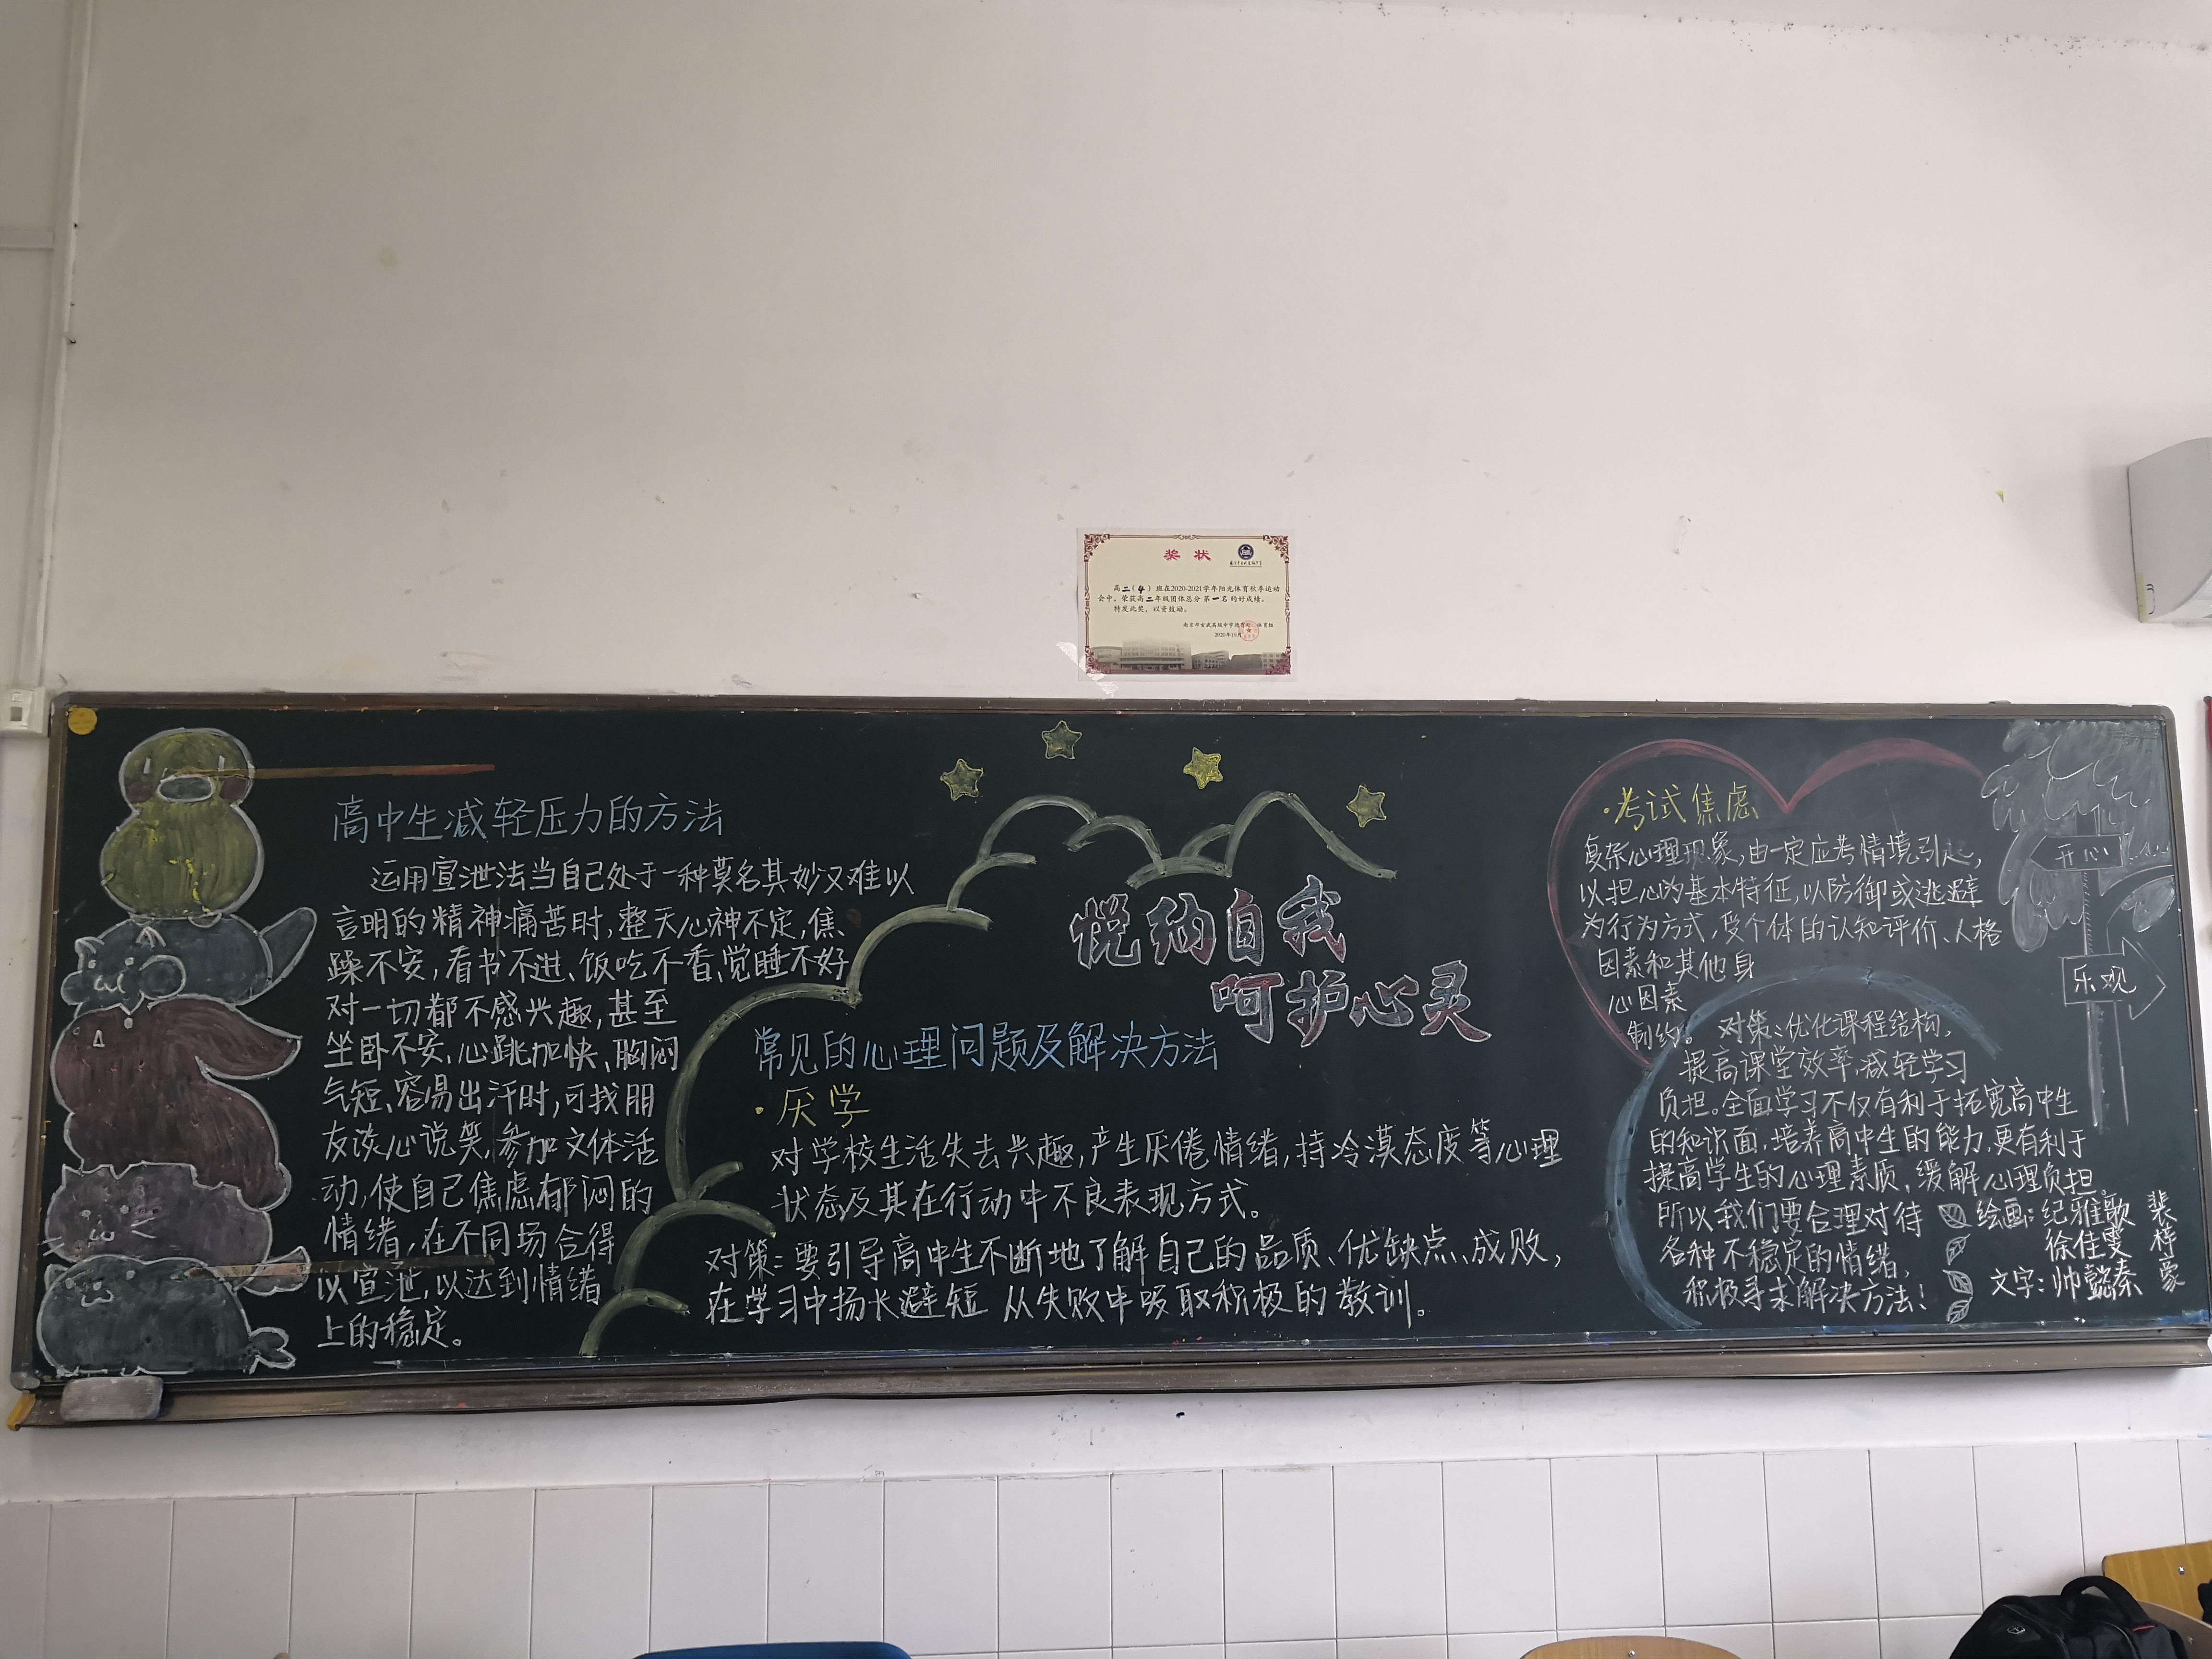 奖状
高二（4）班在2020-2021学年阳光体育秋季运动
会中，荣获高二年级团体总分第一名的好成绩。
特发此奖，以资鼓励。
南京市玄武高级中学德育处、体育组
2020年10月
高中生减轻压力的方法
运用宣泄法当自己处于一种莫名其妙又难以
言明的精神痛苦时,整天心神不定,焦
躁不安,看书不进、饭吃不香、觉睡不好
对一切都不感兴趣,甚至
坐卧不安、心跳加快、胸闷
气短、容易出汗时,可找朋
友谈心说笑,参加文体活
动,使自己焦虑郁闷的
情绪,在不同场合得
以宣泄,以达到情绪
上的稳定。
悦纳自我
呵护心灵
常见的心理问题及解决方法
·厌学
对学校生活失去兴趣,产生厌倦情绪,持冷漠态度等心理
状态及其在行动中不良表现方式。
对策：要引导高中生不断地了解自己的品质、优缺点、成败,
在学习中扬长避短 从失败中吸取积极的教训。
·考试焦虑
复杂心理现象,由一定应考情境引起,
以担心为基本特征,以防御或逃避
为行为方式,受个体的认知评价、人格
因素和其他身
心因素
制约。
对策：优化课程结构,
提高课堂效率,减轻学习
负担。全面学习不仅有利于拓宽高中生
的知识面,培养高中生的能力,更有利于
提高学生的心理素质,缓解心理负担。
所以我们要合理对待
各种不稳定的情绪,
积极寻求解决方法！
开心
乐观
绘画：纪雅歌
徐佳雯
文字：帅懿秦
裴梓豪